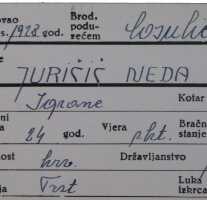 ovao
s. 1928 god.
Brod.
podu-
zećem
Cosulic
e
JURIŠIĆ NEDA
Igrane
Kotar
ni
a 24 god.
Vjera rkt.
Bračn
stanje
ost hrv.
Državljanstvo
ja Trst
Luka
izkrca